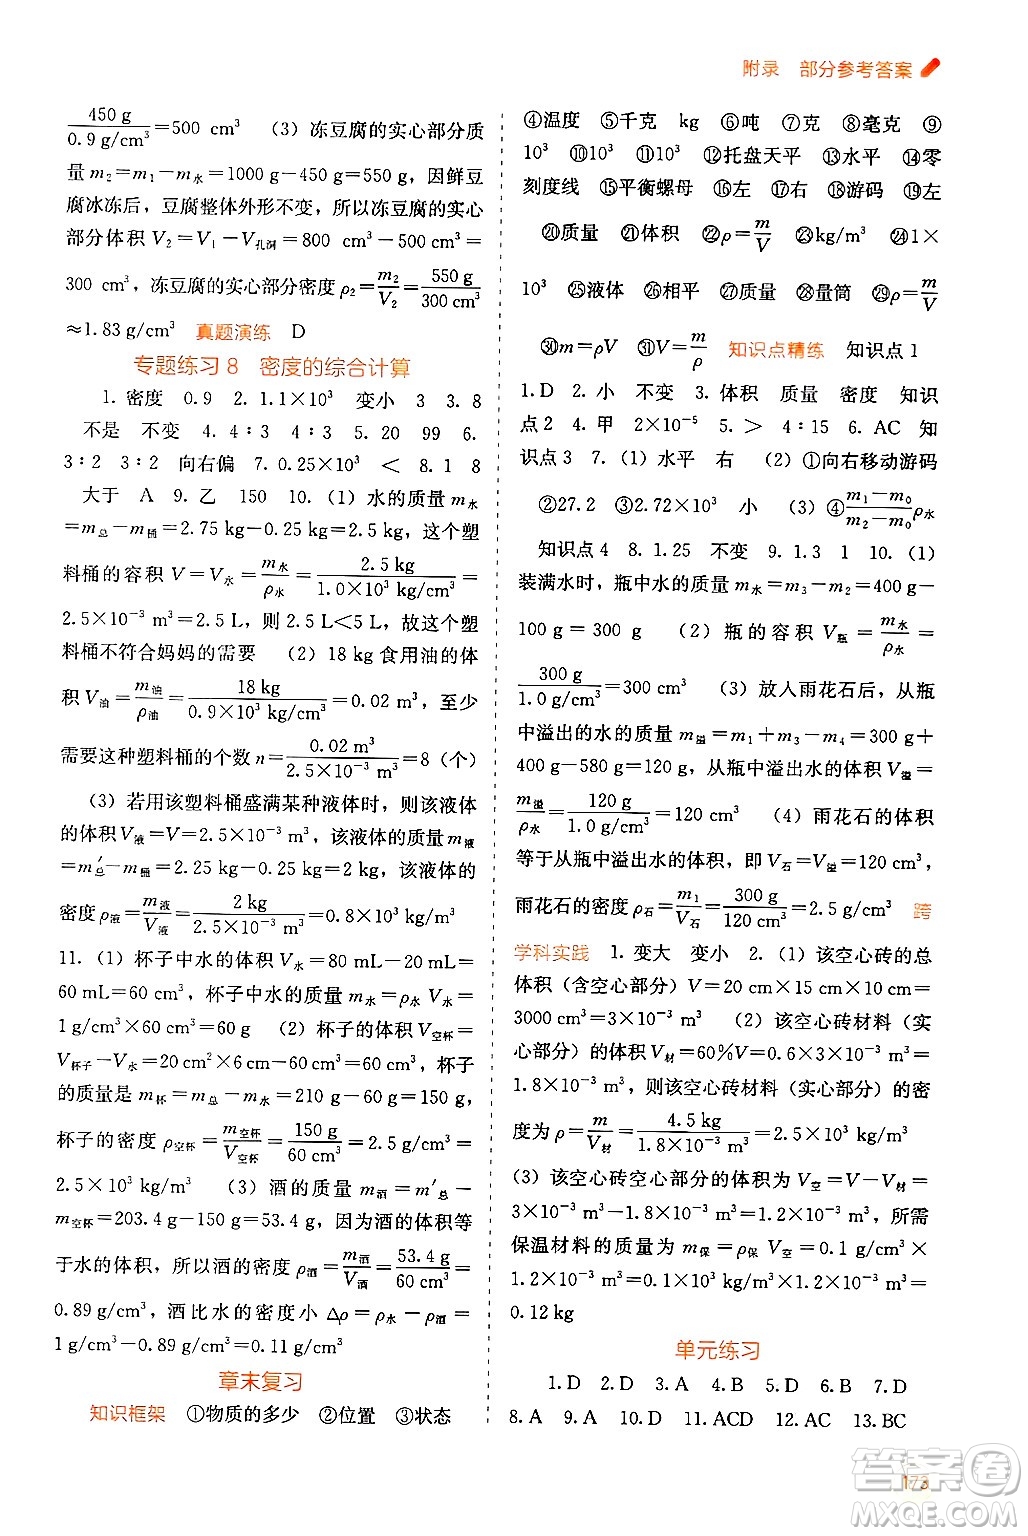 附录 部分参考答案
450 g/0.9 g/cm³=500 cm³ (3) 冻豆腐的实心部分质
量 m₂=m₁-m水=1000 g-450 g=550 g,因鲜豆
腐冰冻后,豆腐整体外形不变,所以冻豆腐的实心
部分体积 V₂=V₁-V孔洞=800 cm³-500 cm³=
300 cm³,冻豆腐的实心部分密度 ρ₂=m₂/V₂=550 g/300 cm³
≈1.83 g/cm³ 真题演练 D
专题练习 8 密度的综合计算
1. 密度 0.9 2. 1.1×10³ 变小 3 3. 8
不是 不变 4. 4∶3 4∶3 5. 20 99 6.
3∶2 3∶2 向右偏 7. 0.25×10³ < 8. 1 8
大于 A 9. 乙 150 10. (1) 水的质量 m水
=m总-m桶=2.75 kg-0.25 kg=2.5 kg,这个塑
料桶的容积 V=V水=m水/ρ水=2.5 kg/1.0×10³ kg/cm³=
2.5×10⁻³ m³=2.5 L,则 2.5 L<5 L,故这个塑
料桶不符合妈妈的需要 (2) 18 kg 食用油的体
积 V油=m油/ρ油=18 kg/0.9×10³ kg/cm³=0.02 m³,至少
需要这种塑料桶的个数 n=0.02 m³/2.5×10⁻³ m³=8(个)
(3) 若用该塑料桶盛满某种液体时,则该液体
的体积 V液=V=2.5×10⁻³ m³,该液体的质量 m液
=m′总-m桶=2.25 kg-0.25 kg=2 kg,该液体的
密度 ρ液=m液/V液=2 kg/2.5×10⁻³ m³=0.8×10³ kg/m³
11. (1) 杯子中水的体积 V水=80 mL-20 mL=
60 mL=60 cm³,杯子中水的质量 m水=ρ水 V水=
1 g/cm³×60 cm³=60 g (2) 杯子的体积 V空杯=
V杯子-V水=20 cm²×6 cm-60 cm³=60 cm³,杯子
的质量是 m杯=m总-m水=210 g-60 g=150 g,
杯子的密度 ρ空杯=m空杯/V空杯=150 g/60 cm³=2.5 g/cm³=
2.5×10³ kg/m³ (3) 酒的质量 m酒=m′总-
m空杯=203.4 g-150 g=53.4 g,因为酒的体积等
于水的体积,所以酒的密度 ρ酒=m酒/V酒=53.4 g/60 cm³=
0.89 g/cm³,酒比水的密度小 Δρ=ρ水-ρ酒=
1 g/cm³-0.89 g/cm³=0.11 g/cm³
章末复习
知识框架 ①物质的多少 ②位置 ③状态
④温度 ⑤千克 kg ⑥吨 ⑦克 ⑧毫克 ⑨
10³ ⑩10³ ⑪10³ ⑫托盘天平 ⑬水平 ⑭零
刻度线 ⑮平衡螺母 ⑯左 ⑰右 ⑱游码 ⑲左
⑳质量 ㉑体积 ㉒ρ=m/V ㉓kg/m³ ㉔1×
10³ ㉕液体 ㉖相平 ㉗质量 ㉘量筒 ㉙ρ=m/V
㉚m=ρV ㉛V=m/ρ 知识点精练 知识点 1
1. D 2. 小 不变 3. 体积 质量 密度 知识
点 2 4. 甲 2×10⁻⁵ 5. > 4∶15 6. AC 知
识点 3 7. (1) 水平 右 (2) ①向右移动游码
②27.2 ③2.72×10³ 小 (3) ④m₁-m₀/m₂-m₀ρ水
知识点 4 8. 1.25 不变 9. 1.3 1 10. (1)
装满水时,瓶中水的质量 m水=m₃-m₂=400 g-
100 g=300 g (2) 瓶的容积 V瓶=m水/ρ水=
300 g/1.0 g/cm³=300 cm³ (3) 放入雨花石后,从瓶
中溢出的水的质量 m溢=m₁+m₃-m₄=300 g+
400 g-580 g=120 g,从瓶中溢出水的体积 V溢=
m溢/ρ水=120 g/1.0 g/cm³=120 cm³ (4) 雨花石的体积
等于从瓶中溢出水的体积,即 V石=V溢=120 cm³,
雨花石的密度 ρ石=m₁/V石=300 g/120 cm³=2.5 g/cm³ 跨
学科实践 1. 变大 变小 2. (1) 该空心砖的总
体积(含空心部分) V=20 cm×15 cm×10 cm=
3000 cm³=3×10⁻³ m³ (2) 该空心砖材料
(实心部分)的体积 V材=60%V=0.6×3×10⁻³ m³=
1.8×10⁻³ m³,则该空心砖材料(实心部分)的密
度为 ρ=m/V材=4.5 kg/1.8×10⁻³ m³=2.5×10³ kg/m³
(3) 该空心砖空心部分的体积为 V空=V-V材=
3×10⁻³ m³-1.8×10⁻³ m³=1.2×10⁻³ m³,所需
保温材料的质量为 m保=ρ保 V空=0.1 g/cm³×
1.2×10⁻³ m³=0.1×10³ kg/m³×1.2×10⁻³ m³=
0.12 kg
单元练习
1. D 2. D 3. A 4. B 5. D 6. B 7. D
8. A 9. A 10. D 11. ACD 12. AC 13. BC
173
答案圈
MXQE.COM